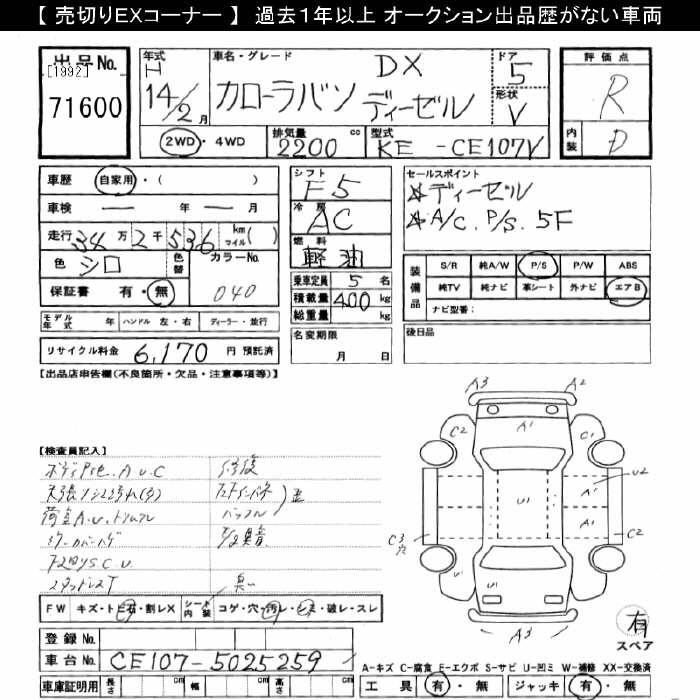 【 売切りEXコーナー 】 過去1年以上 オークション出品歴がない車両
出品No. [1992] 71600
年式 H 14/2月
車名・グレード カローラバン DX ディーゼル
ドア 5
形状 V
評価点 R
内装 D
2WD・4WD
排気量 2200 cc
型式 KE -CE107V
車歴 自家用・( )
車検 ー 年 ー 月
走行 34万2千536 km マイル( )
色 シロ 色替
カラーNo. 040
保証書 有・無
シフト F5
冷房 AC
燃料 軽油
乗車定員 5 名
積載量 400 kg
総重量 kg
セールスポイント
☆ディーゼル
☆A/C. P/S. 5F
装備品
S/R 純A/W P/S P/W ABS
純TV 純ナビ 革シート 外ナビ エアB
ナビ型番:
モデル年式 年 ハンドル 左・右 ディーラー・並行
名変期限 月 日
後日品
リサイクル料金 6,170 円 預託済
【出品店申告欄(不良箇所・欠品・注意事項等)】
【検査員記入】
修復
FW キズ・トビ石・割レX
シート内装 コゲ・穴・汚レ・シミ・破レ・スレ
登録No.
車台No. CE107-5025259
車庫証明用 長さ cm 幅 cm 高さ cm
A3 A2
C2 A1 C1
U2
A1
A1
C3穴 C2
U1 U1
A3
有
スペア
A-キズ C-腐食 E-エクボ S-サビ U-凹ミ W-補修 XX-交換済
工具 有・無 ジャッキ 有・無